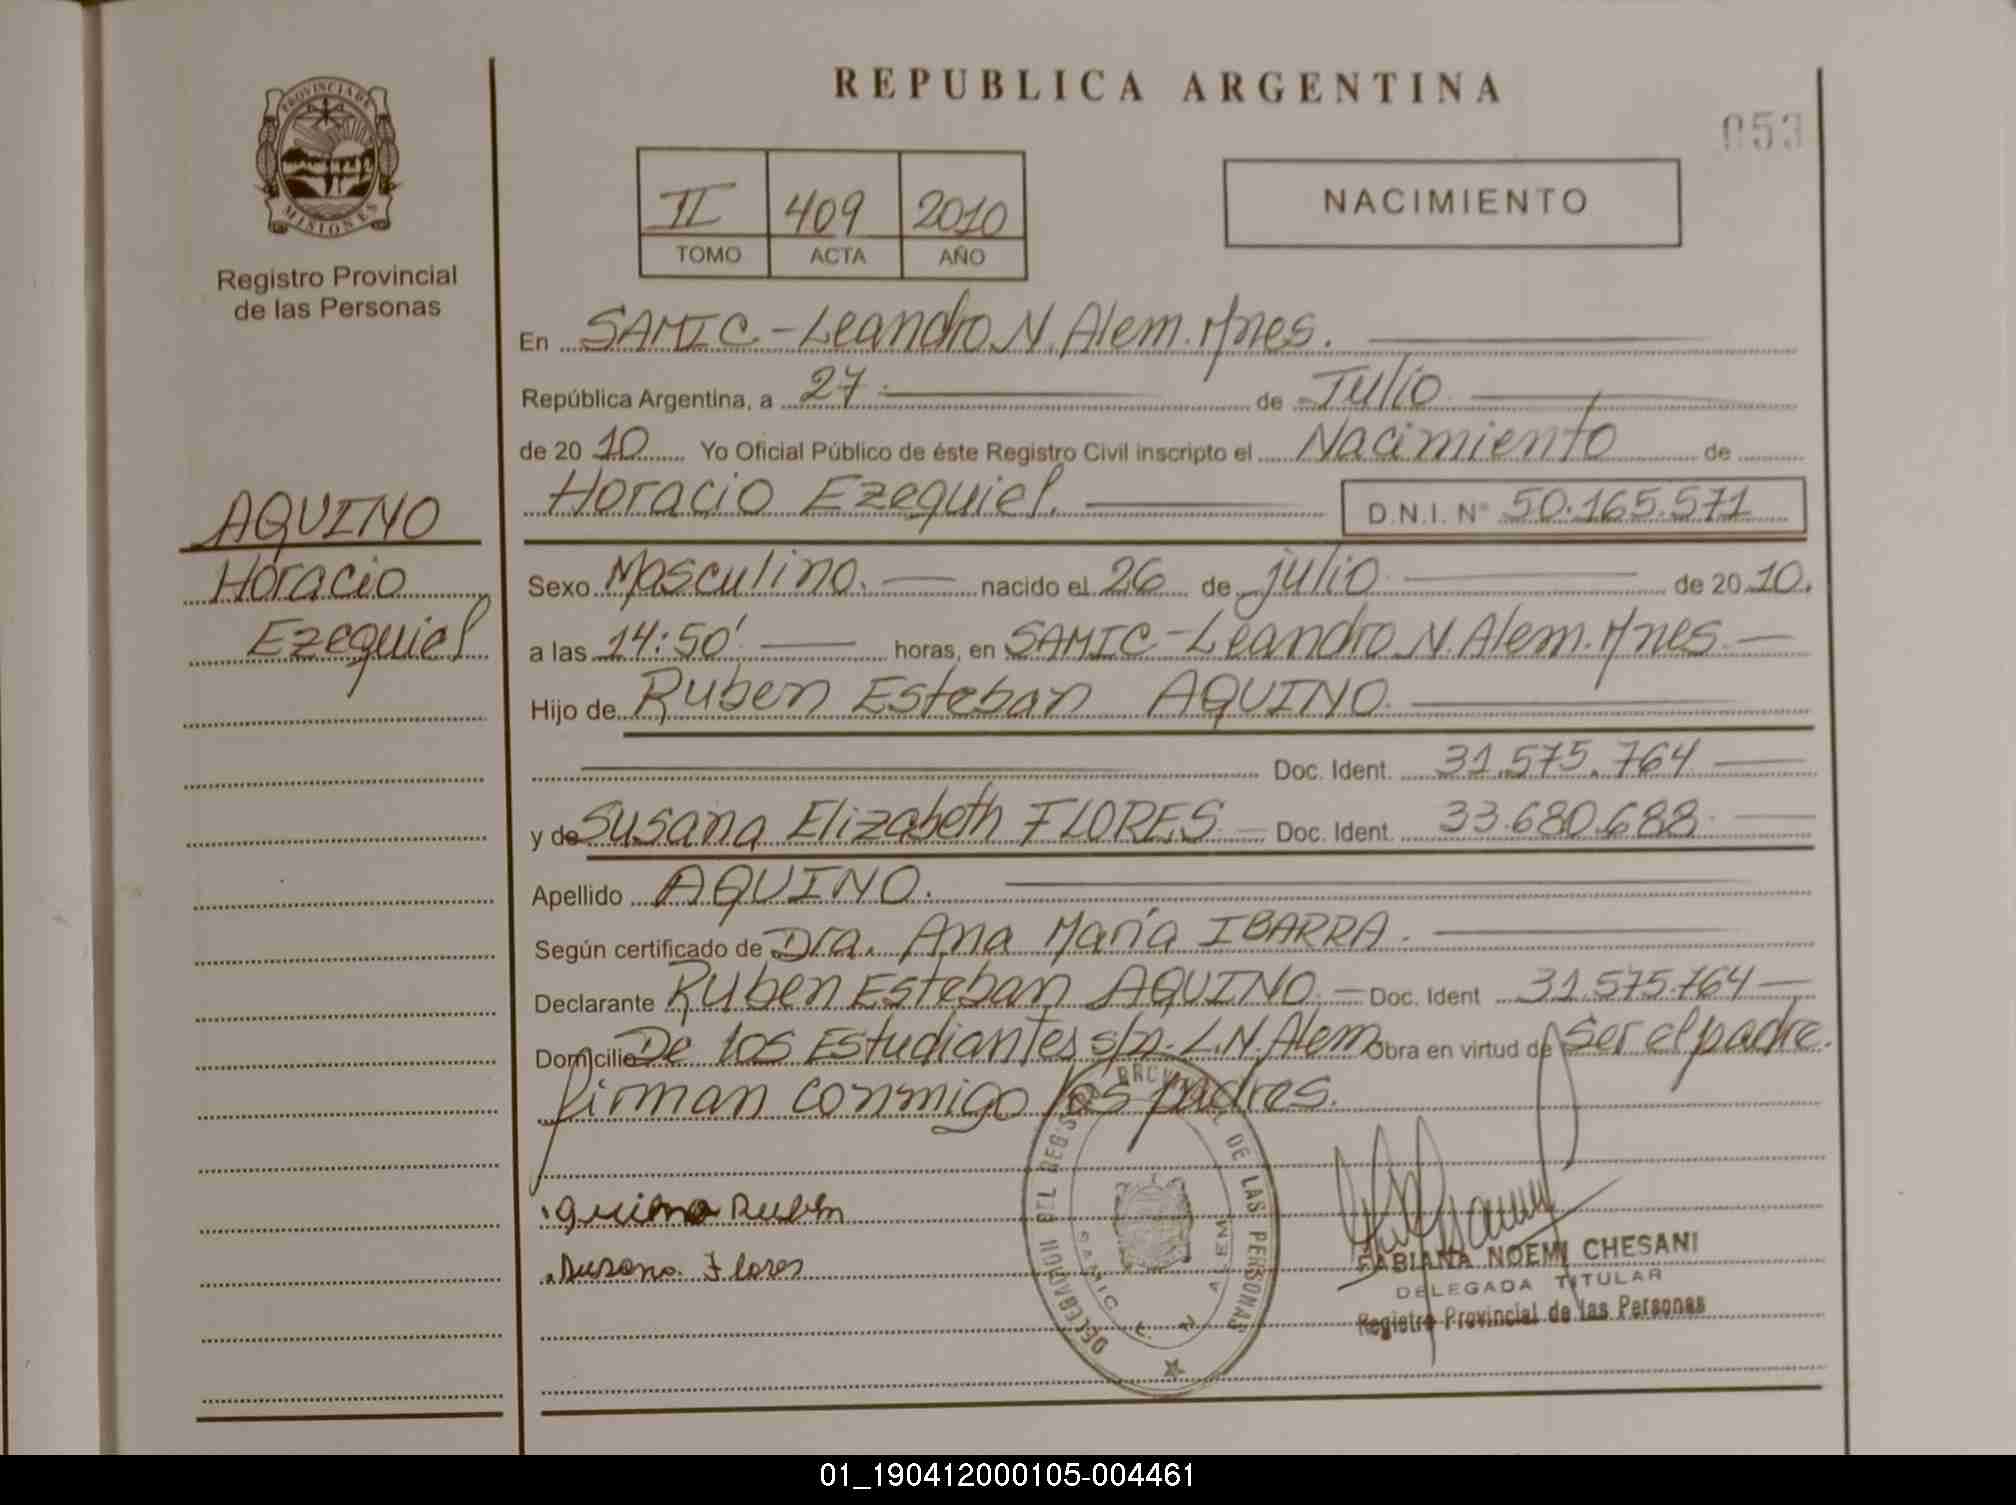 PROVINCIA DE
MISIONES
Registro Provincial
de las Personas
AQUINO
Horacio
Ezequiel
REPUBLICA ARGENTINA
053
II 409 2010
TOMO ACTA AÑO
NACIMIENTO
En SAMIC - Leandro N. Alem. Mnes.
República Argentina, a 27 de Julio
de 2010 Yo Oficial Público de éste Registro Civil inscripto el Nacimiento de
Horacio Ezequiel. D.N.I. N° 50.165.571
Sexo Masculino. nacido el 26 de julio de 2010.
a las 14:50' horas, en SAMIC - Leandro N. Alem. Mnes.
Hijo de Ruben Esteban AQUINO.
Doc. Ident. 31.575.764
y de Susana Elizabeth FLORES Doc. Ident. 33.680.688
Apellido AQUINO.
Según certificado de Dra. Ana María IBARRA.
Declarante Ruben Esteban AQUINO. Doc. Ident 31.575.764
Domicilio De los Estudiantes s/n. L.N. Alem Obra en virtud de Ser el padre.
firman conmigo los padres.
Aquino Ruben
Susana Flores
DELEGACION DEL REGISTRO PROVINCIAL DE LAS PERSONAS
SAMIC L. N. ALEM
FABIANA NOEMI CHESANI
DELEGADA TITULAR
Registro Provincial de las Personas
01_190412000105-004461